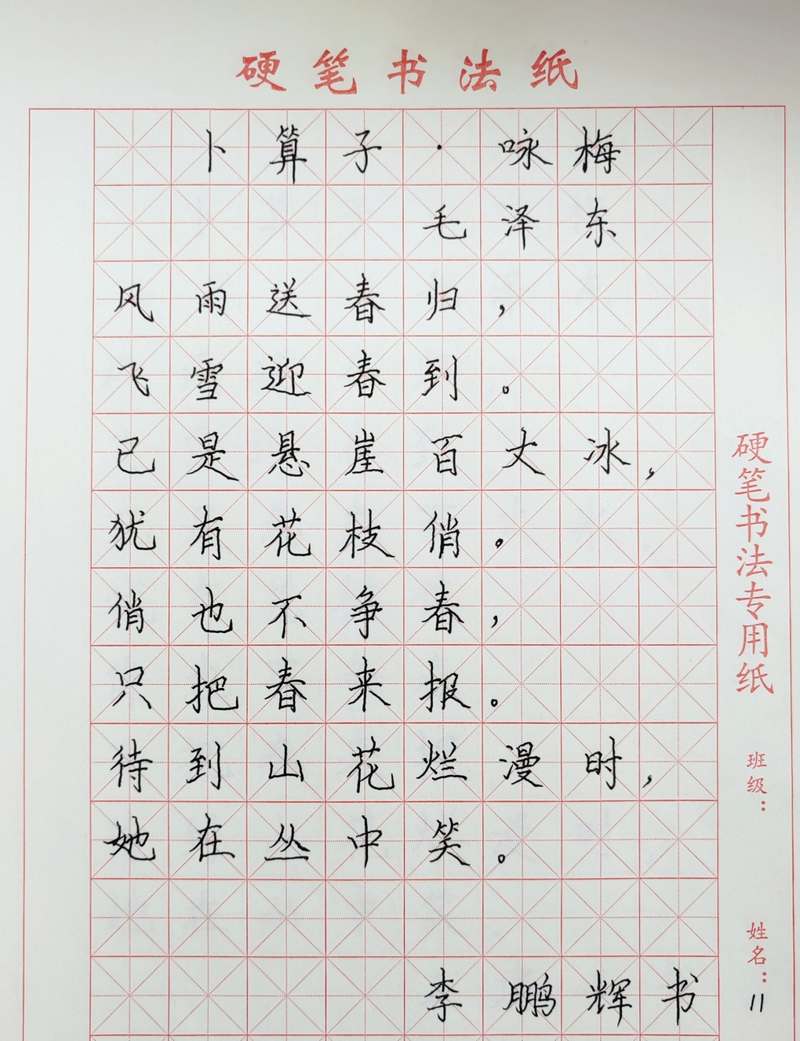 硬笔书法纸
卜算子·咏梅
毛泽东
风雨送春归，
飞雪迎春到。
已是悬崖百丈冰，
犹有花枝俏。
俏也不争春，
只把春来报。
待到山花烂漫时，
她在丛中笑。
李鹏辉书
硬笔书法专用纸
班级：
姓名：11